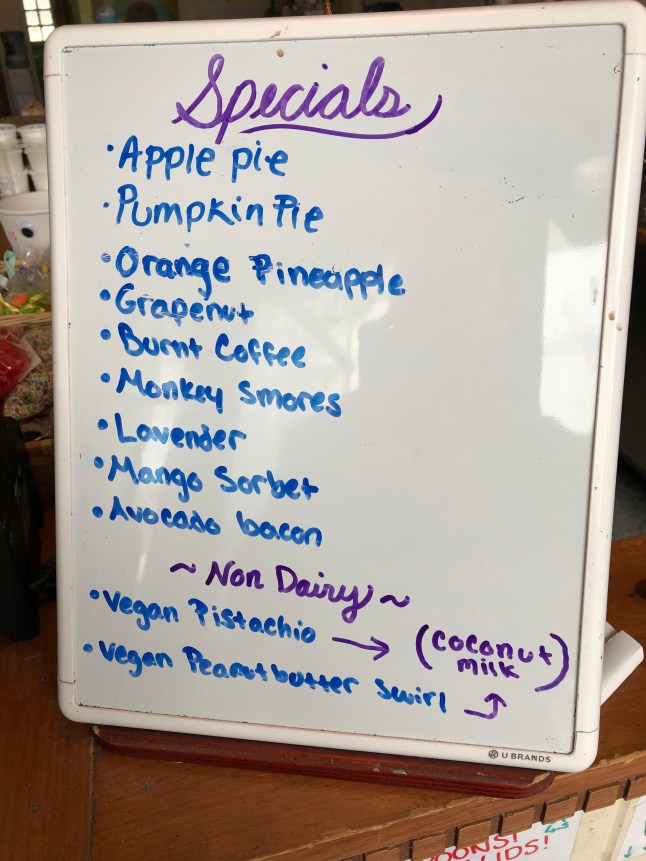 Specials
•Apple pie
•Pumpkin Pie
•Orange Pineapple
•Grapenut
•Burnt Coffee
•Monkey Smores
•Lavender
•Mango Sorbet
•Avocado bacon
~ Non Dairy ~
•Vegan Pistachio → (coconut milk)
•Vegan Peanutbutter Swirl ↑
U BRANDS